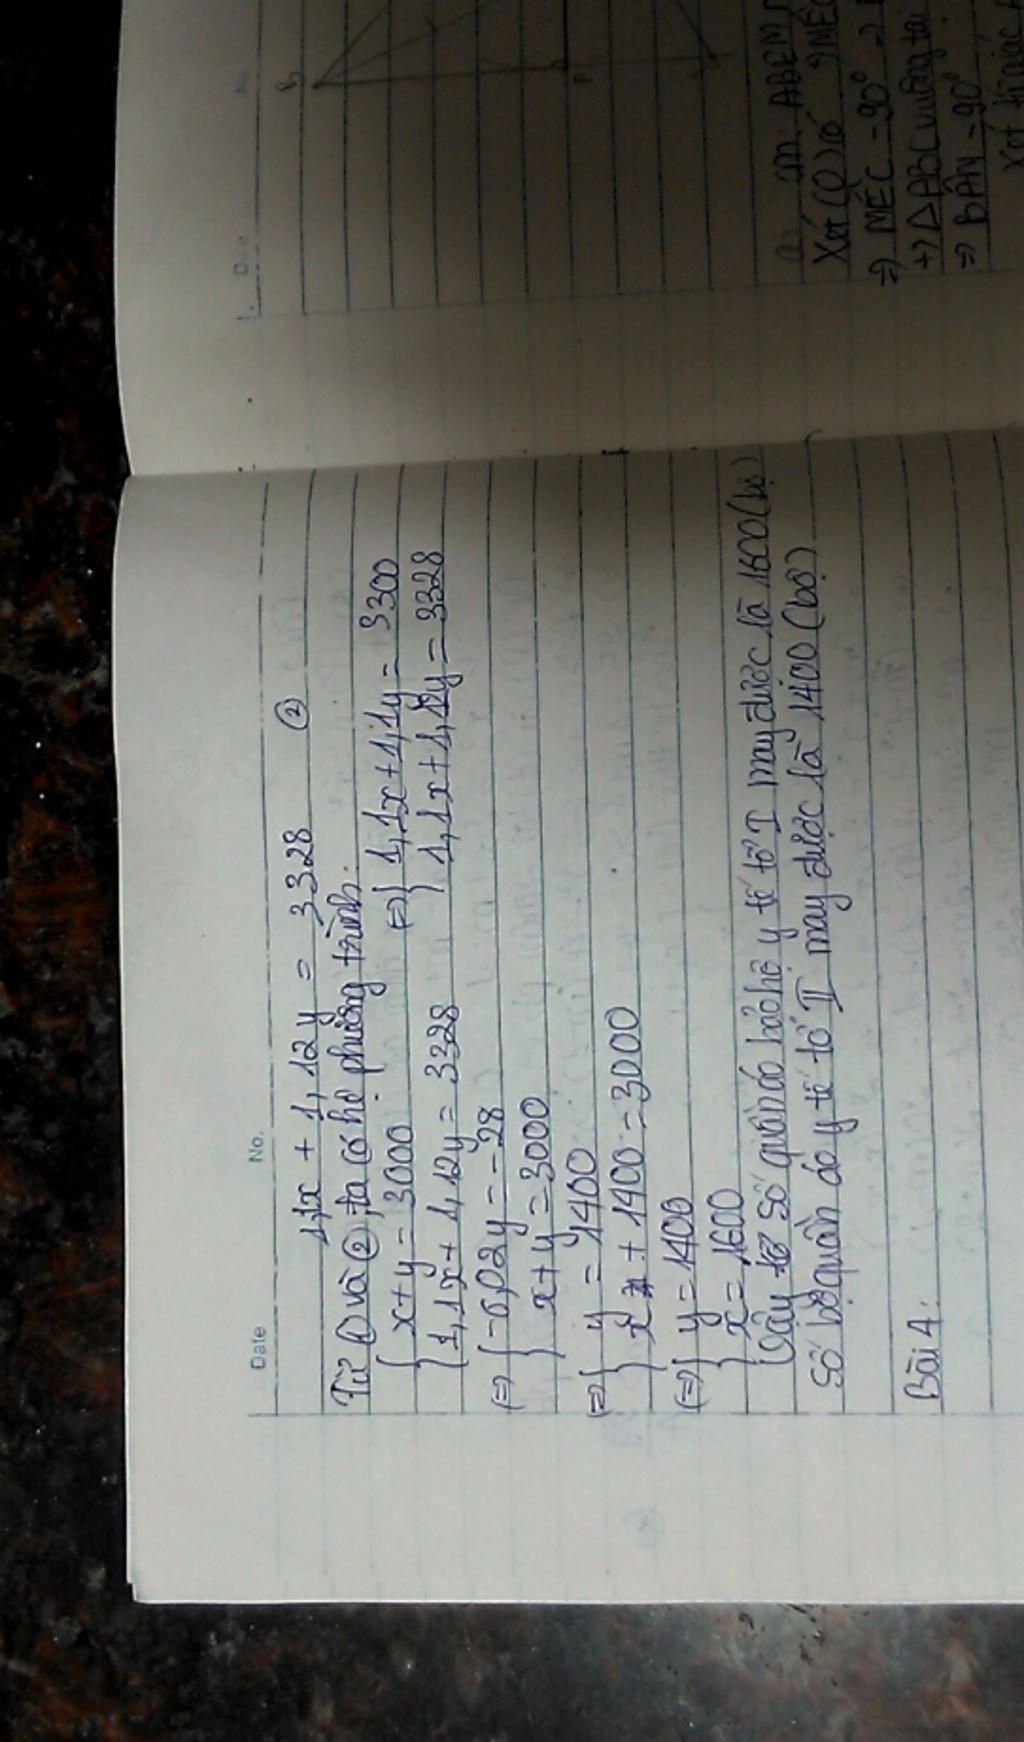 Date No.
1,1x + 1,12y = 3328 ②
Từ ① và ②, ta có hệ phương trình:
{ x+y = 3000 (=> { 1,1x+1,1y = 3300
{ 1,1x + 1,12y = 3328 { 1,1x+1,12y = 3328
(=> { -0,02y = -28
{ x+y = 3000
(=> { y = 1400
{ x + 1400 = 3000
(=> { y = 1400
{ x = 1600
Vậy số quần áo bảo hộ y tế tổ I may được là 1600 (bộ)
Số bộ quần áo y tế tổ II may được là 1400 (bộ)
Bài 4:
Date No.
a, cm: ABEM
Xét (O) có
=> MEC = 90°
+) △ABC vuông tại
=> BAM = 90°
Xét tứ giác